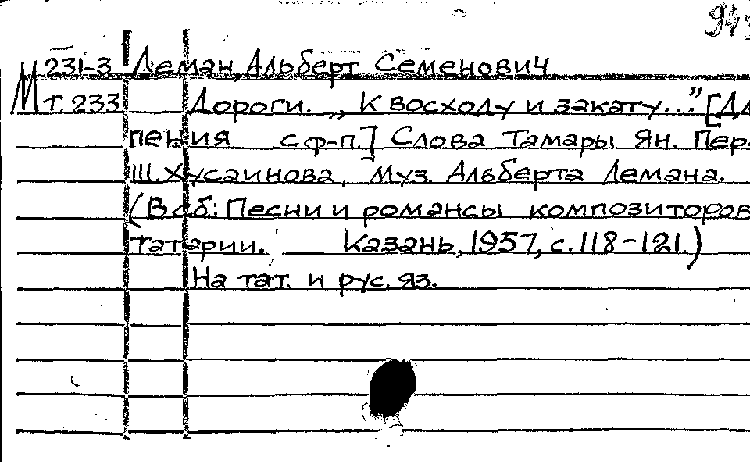 М 231-3 Леман, Альберт Семенович
Т. 233 Дороги. „К восходу и закату..." [Дл
пения с ф-п.] Слова Тамары Ян. Пер.
Ш. Хусаинова, муз. Альберта Лемана.
(В сб: Песни и романсы композиторов
Татарии. Казань, 1957, с. 118-121.)
На тат. и рус. яз.